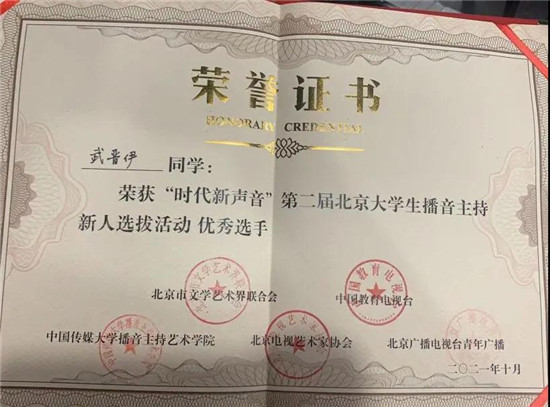 荣誉证书
HONORARY CREDENTIAL
武晋伊 同学：
荣获“时代新声音”第二届北京大学生播音主持
新人选拔活动 优秀选手
北京市文学艺术界联合会 中国教育电视台
中国传媒大学播音主持艺术学院 北京电视艺术家协会 北京广播电视台青年广播
二〇二一年十月